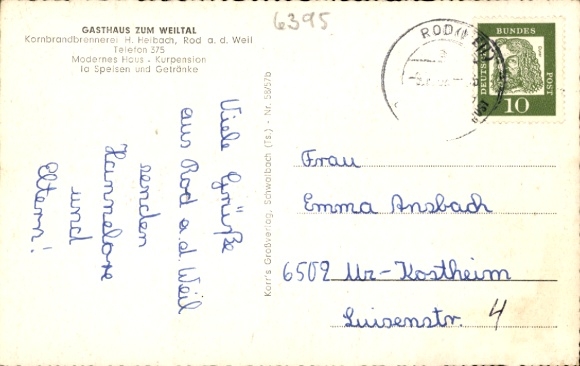 6395
GASTHAUS ZUM WEILTAL
Kornbrandbrennerei H. Heibach, Rod a. d. Weil
Telefon 375
Modernes Haus - Kurpension
Ia Speisen und Getränke
Viele Grüße
aus Rod a. d. Weil
senden
Hannelore
und
Eltern!
Korr's Großverlag, Schwalbach (Ts.) - Nr. 58/57b
ROD
DEUTSCHE BUNDESPOST
10
Frau
Emma Ansbach
6502 Mz-Kostheim
Luisenstr. 4